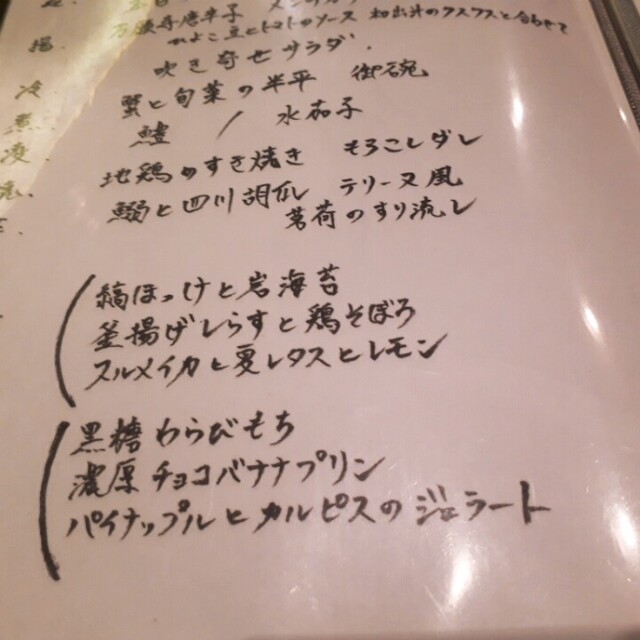 万願寺唐辛子
ひよこ豆とトマトのソース 和出汁のクスクスと合わせて
吹き寄せサラダ.
蟹と旬菜の半平 御碗
鱧 / 水茄子
地鶏のすき焼き もろこしダレ
鰯と四川胡瓜 テリーヌ風
茗荷のすり流し
縞ほっけと岩海苔
釜揚げしらすと鶏そぼろ
スルメイカと夏レタスとレモン
黒糖わらびもち
濃厚チョコバナナプリン
パイナップルとカルピスのジェラート